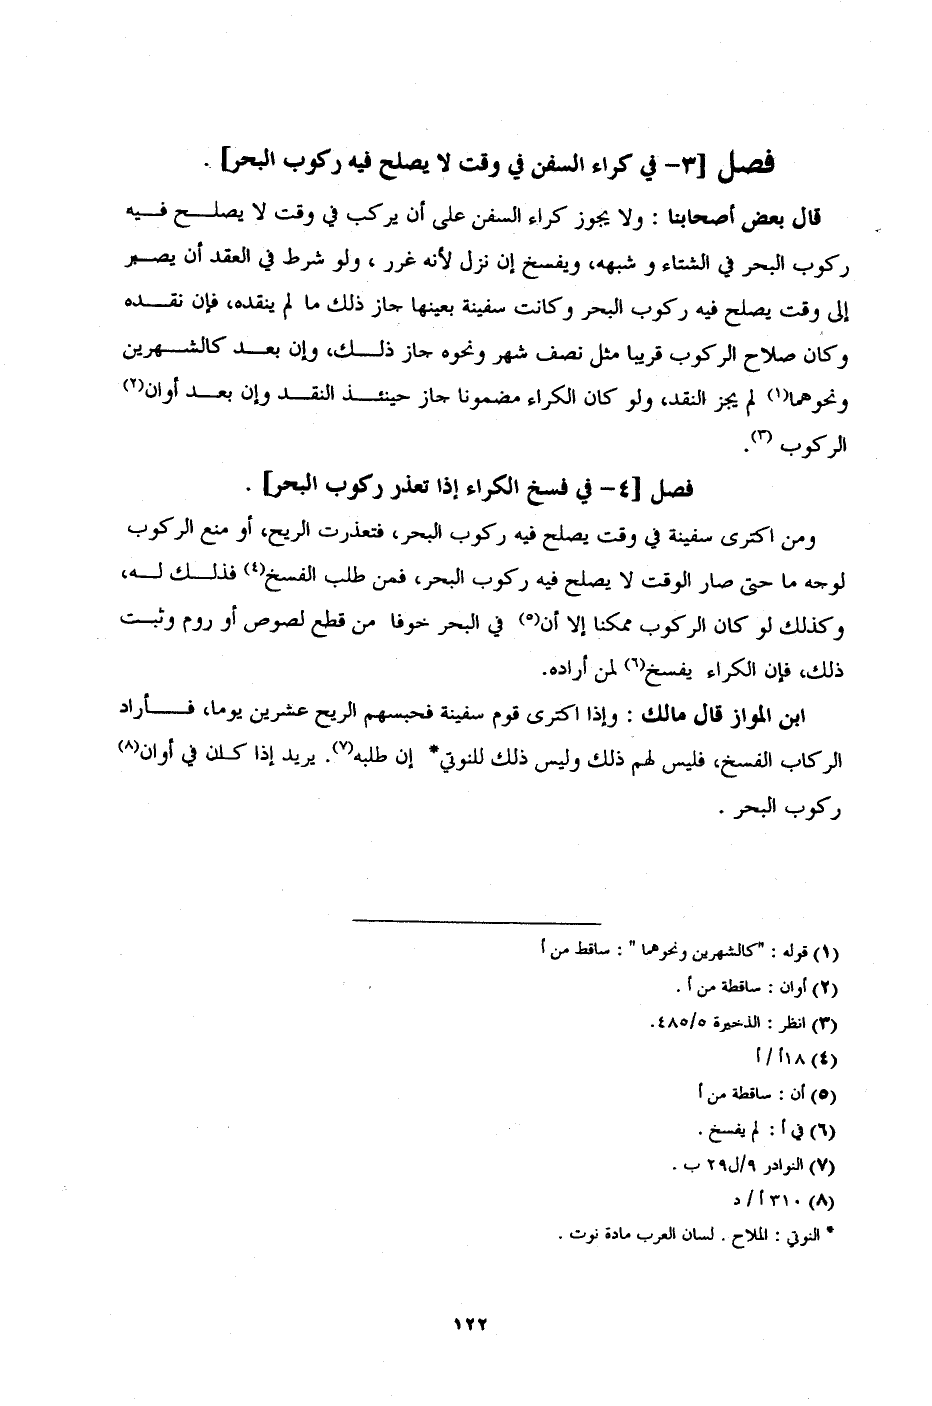 فصل [٣- في كراء السفن في وقت لا يصلح فيه ركوب البحر] .
قال بعض أصحابنا : ولا يجوز كراء السفن على أن يركب في وقت لا يصلح فيه
ركوب البحر في الشتاء و شبهه، ويفسخ إن نزل لأنه غرر ، ولو شرط في العقد أن يصبر
إلى وقت يصلح فيه ركوب البحر وكانت سفينة بعينها جاز ذلك ما لم ينقده، فإن نقده
وكان صلاح الركوب قريبا مثل نصف شهر ونحوه جاز ذلك، وإن بعد كالشهرين
ونحوهما(١) لم يجز النقد، ولو كان الكراء مضمونا جاز حينئذ النقد وإن بعد أوان(٢)
الركوب (٣).
فصل [٤- في فسخ الكراء إذا تعذر ركوب البحر] .
ومن اكترى سفينة في وقت يصلح فيه ركوب البحر، فتعذرت الريح، أو منع الركوب
لوجه ما حتى صار الوقت لا يصلح فيه ركوب البحر، فمن طلب الفسخ(٤) فذلك له،
وكذلك لو كان الركوب ممكنا إلا أن(٥) في البحر خوفا من قطع لصوص أو روم وثبت
ذلك، فإن الكراء يفسخ(٦) لمن أراده.
ابن المواز قال مالك : وإذا اكترى قوم سفينة فحبسهم الريح عشرين يوما، فأراد
الركاب الفسخ، فليس لهم ذلك وليس ذلك للنوتي* إن طلبه(٧). يريد إذا كان في أوان(٨)
ركوب البحر .
(١) قوله : "كالشهرين ونحوهما " : ساقط من أ
(٢) أوان : ساقطة من أ .
(٣) انظر : الذخيرة ٤٨٥/٥.
(٤) ١٨أ / أ
(٥) أن : ساقطة من أ
(٦) في أ : لم يفسخ .
(٧) النوادر ٩/ل٢٩ ب .
(٨) ٣١٠أ / د
* النوتي : الملاح . لسان العرب مادة نوت .
١٢٢